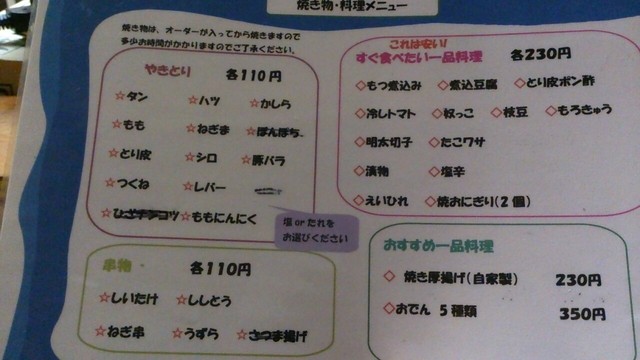 焼き物・料理メニュー
焼き物は、オーダーが入ってから焼きますので
多少お時間がかかりますのでご了承ください。
やきとり 各110円
☆タン ☆ハツ ☆かしら
☆もも ☆ねぎま ☆ぼんぼち
☆とり皮 ☆シロ ☆豚バラ
☆つくね ☆レバー
☆ひざナンコツ ☆ももにんにく
塩orたれを
お選びください
串物 各110円
☆しいたけ ☆ししとう
☆ねぎ串 ☆うずら ☆さつま揚げ
これは安い!
すぐ食べたい一品料理 各230円
◇もつ煮込み ◇煮込豆腐 ◇とり皮ポン酢
◇冷しトマト ◇奴っこ ◇枝豆 ◇もろきゅう
◇明太切子 ◇たこワサ
◇漬物 ◇塩辛
◇えいひれ ◇焼おにぎり(2個)
おすすめ一品料理
◇焼き厚揚げ(自家製) 230円
◇おでん 5種類 350円